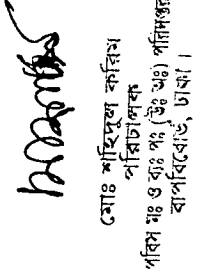 মোঃ শহিদুল করিম
পরিচালক
পবিস মঃ ও বাঃ পঃ (উঃ অঃ) পরিদপ্তর
বাপবিবোর্ড, ঢাকা।